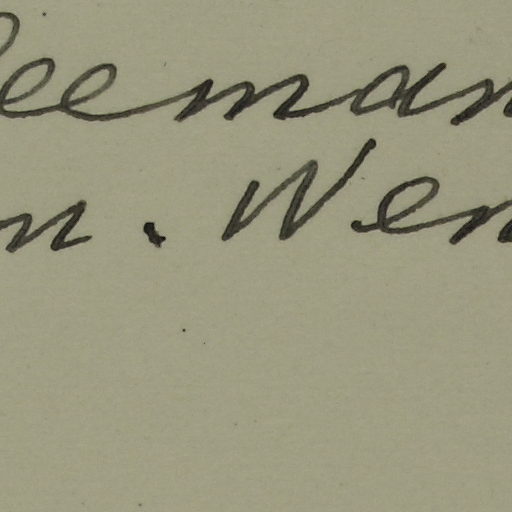 leeman
n. Wen